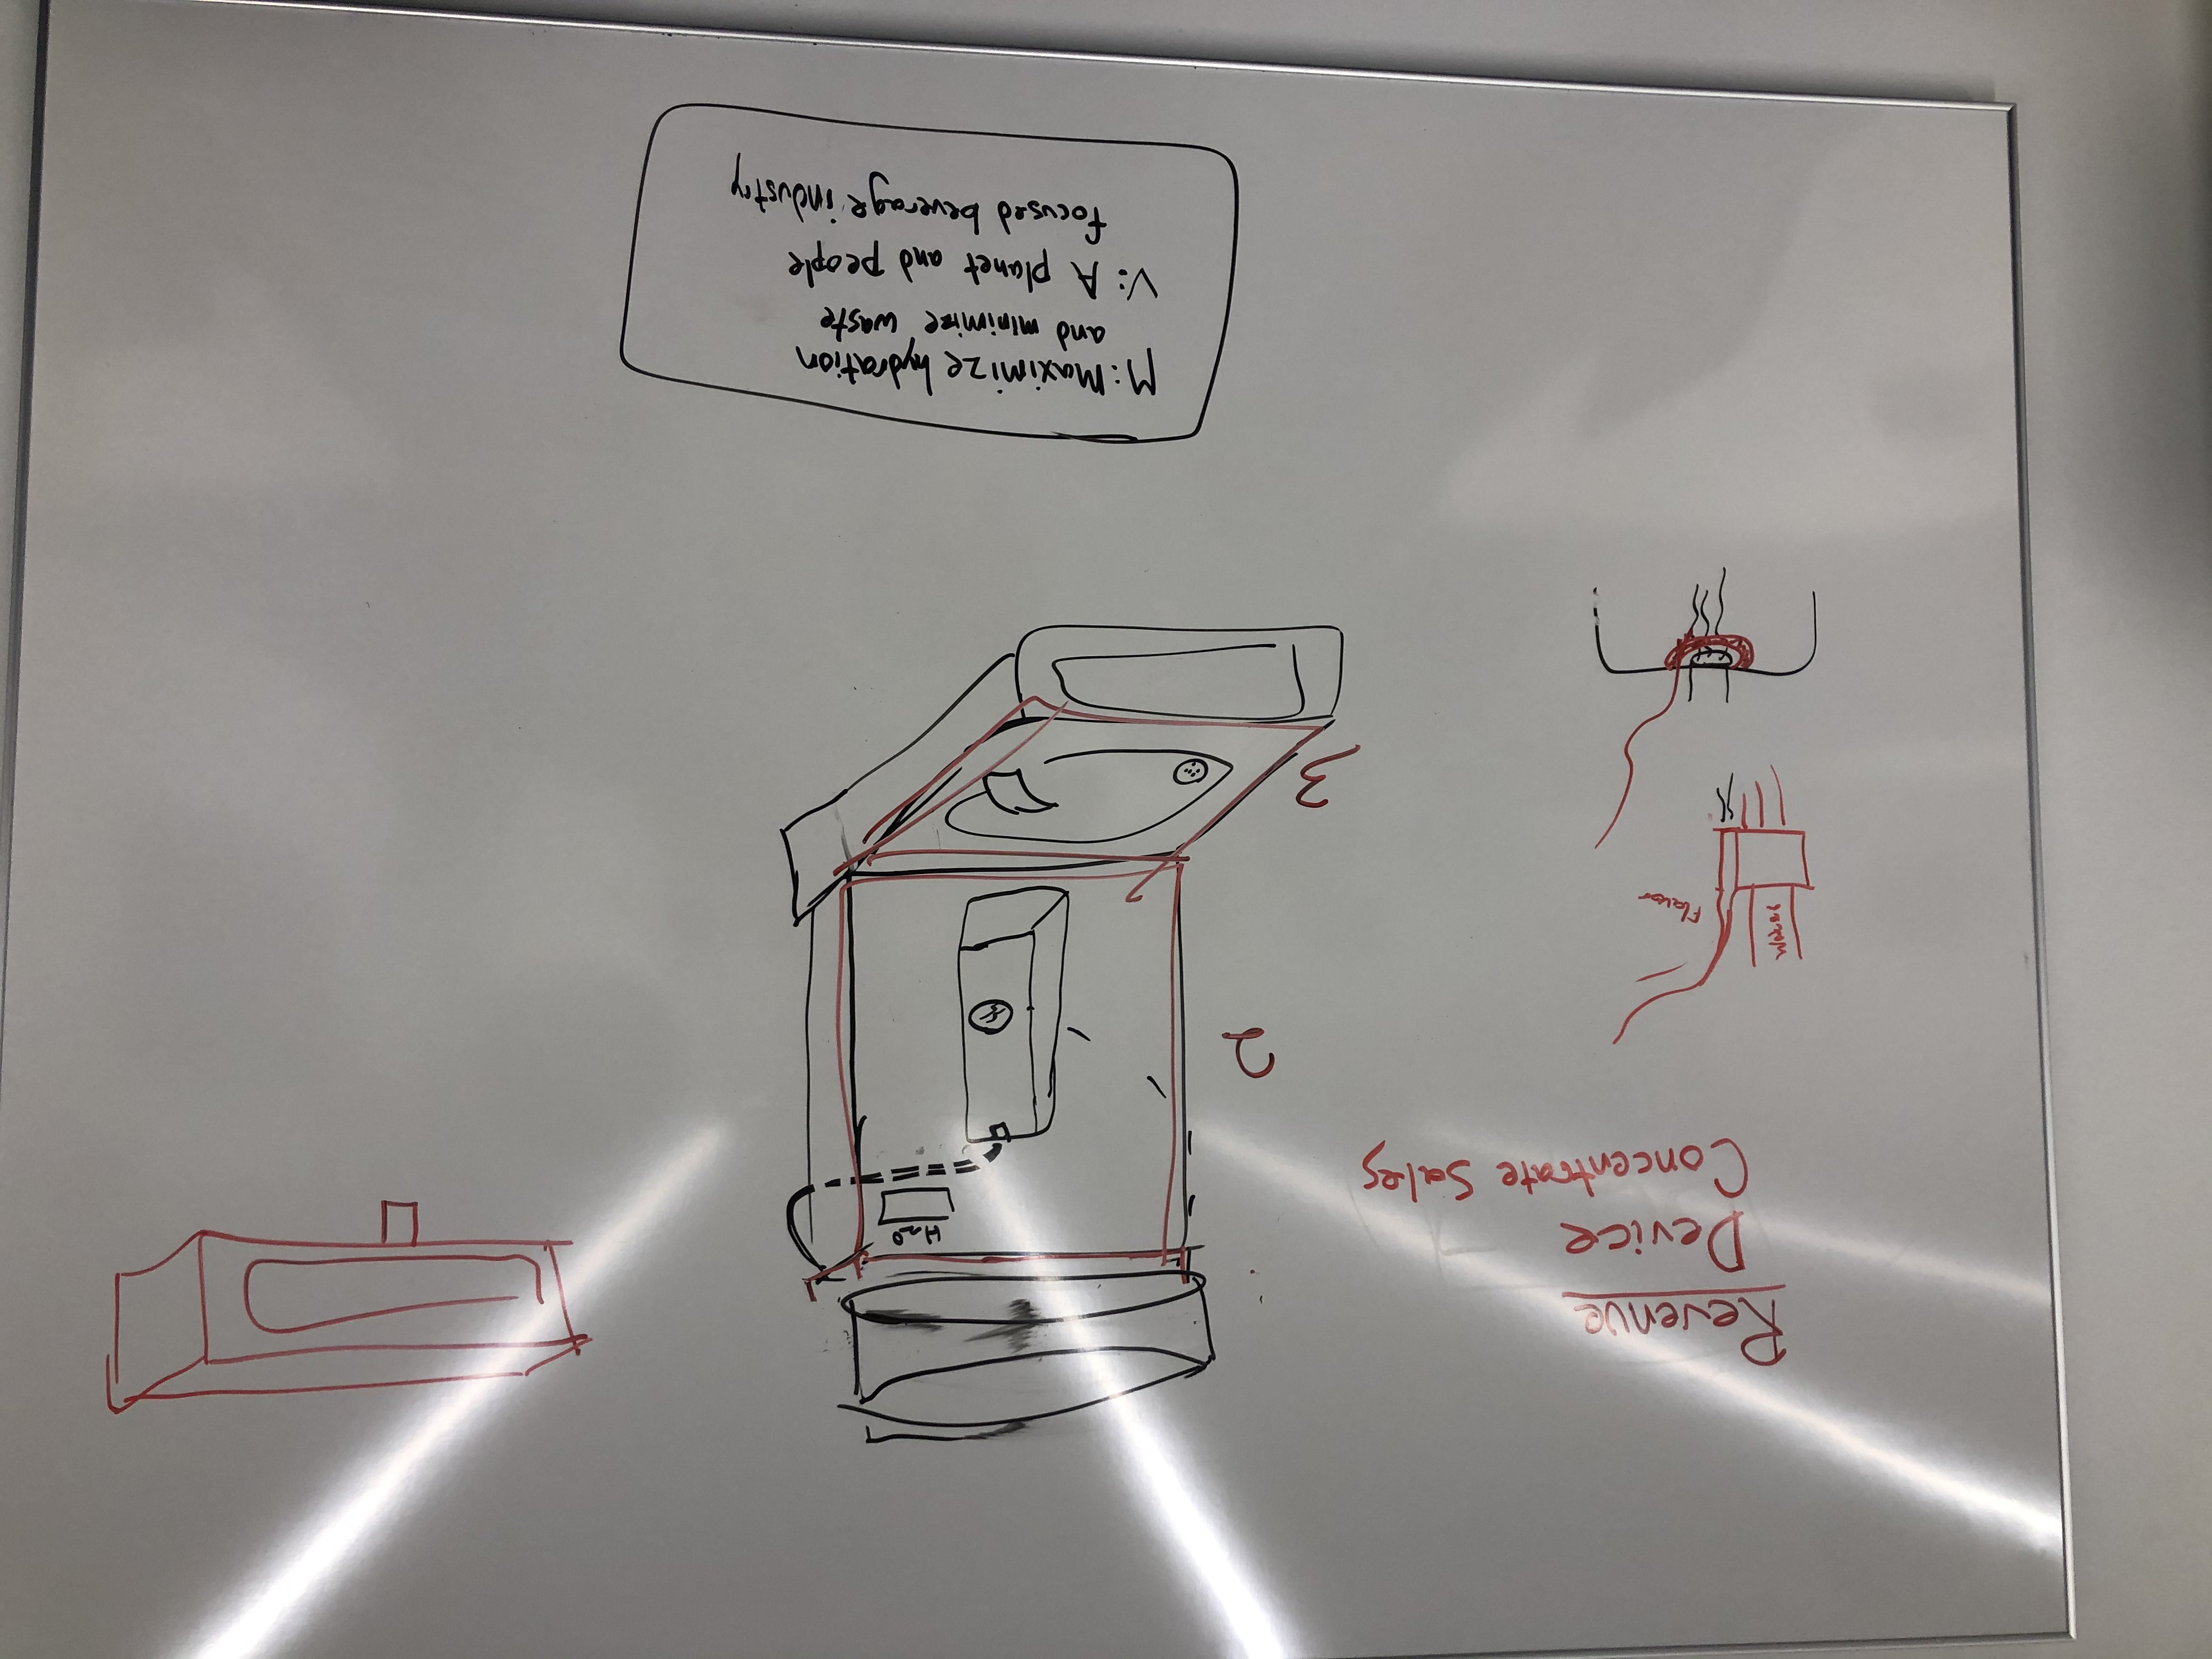 Revenue
Device
Concentrate Sales
H₂O
2
Water
Flavor
3
M: Maximize hydration
and minimize waste
V: A planet and people
focused beverage industry